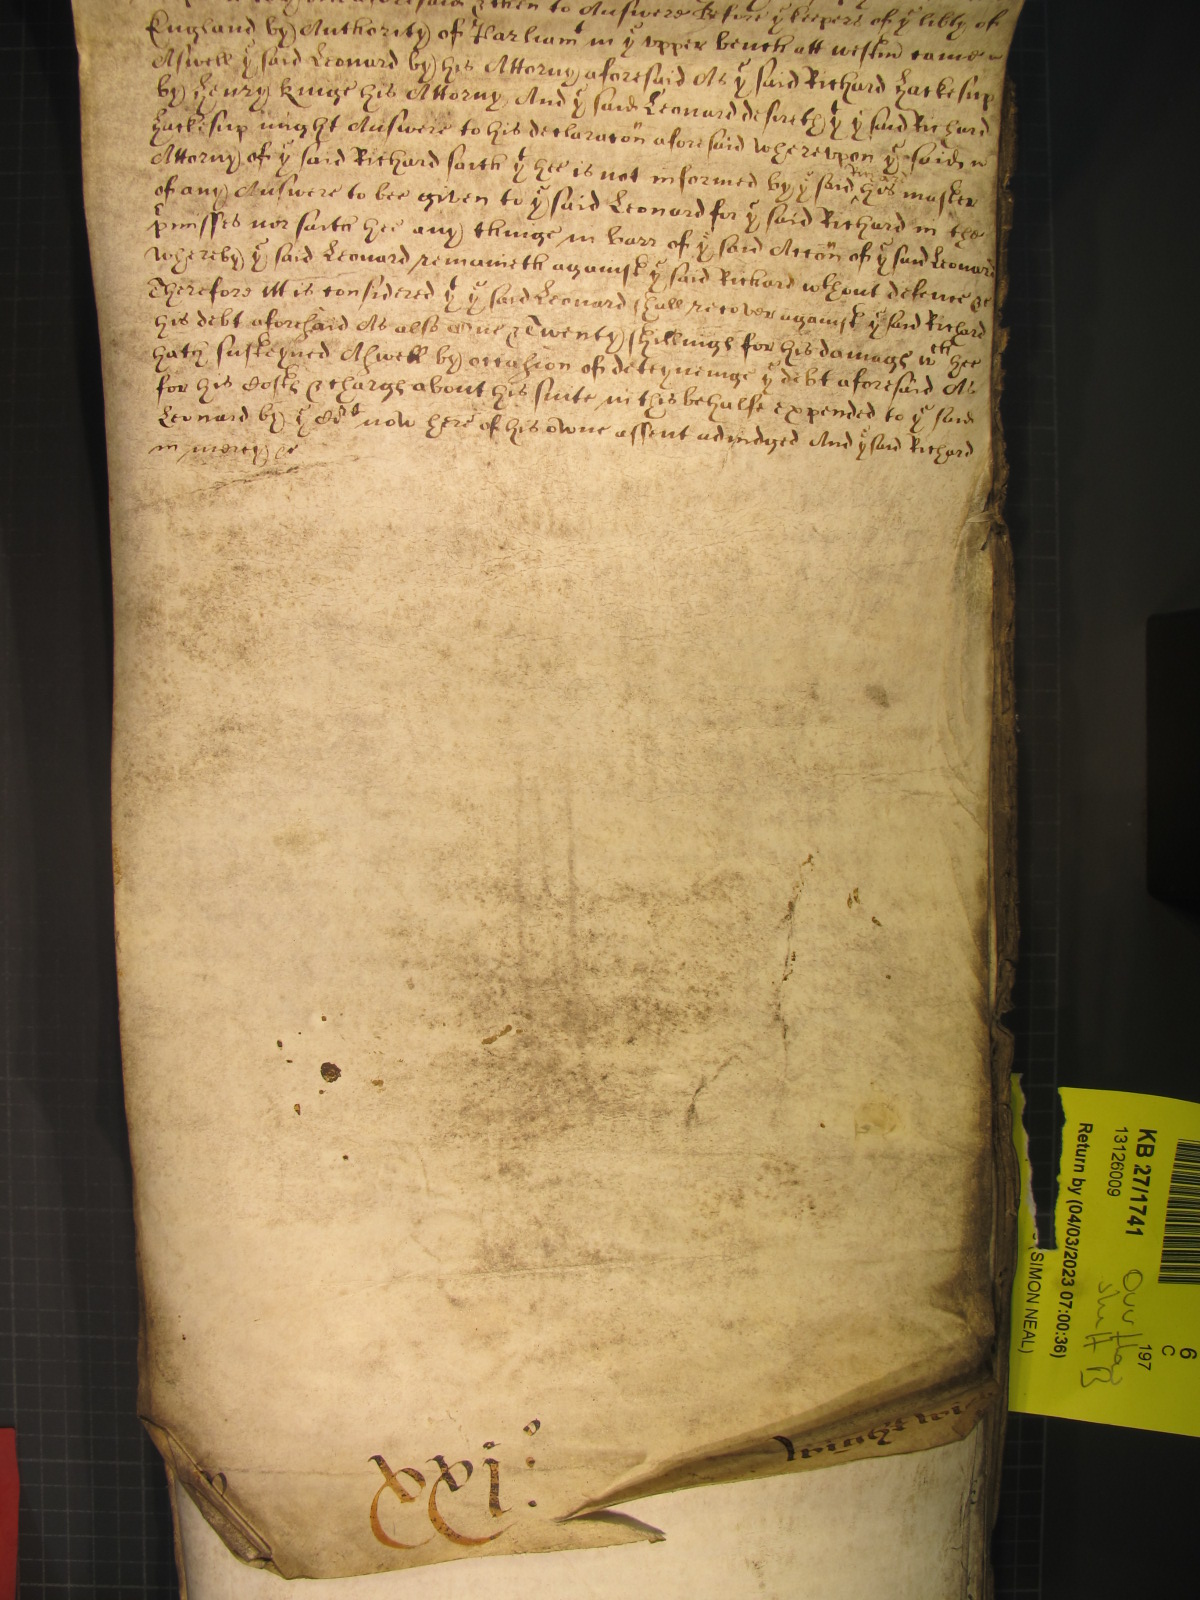 aforesaid & then to Answere Before yͤ keepers of yͤ libty of
England by Authority of Parliamᵗ in yͤ vpper bench att westm̃ came
Aswell yͤ said Leonard by his Attorny aforesaid As yͤ said Richard Hackesup
by Henry Kinge his Attorny And yͤ said Leonard desireth yᵗ yͤ said Richard
Hackesup might Answere to his declaracõn aforesaid wherevpon yͤ said
Attorny of yͤ said Richard saith yᵗ hee is not informed by yͤ said Richard his master
of any Answere to bee given to yͤ said Leonard for yͤ said Richard in the
p̃misses nor saith hee any thinge in barr of yͤ said Accõn of yͤ said Leonard
whereby yͤ said Leonard remaineth against yͤ said Richard wᵗhout defence &c
Therefore itt is considered yᵗ yͤ said Leonard shall recover against yͤ said Richard
his debt aforesaid As also Twenty shillings for his damags wᶜʰ hee
hath susteyned Aswell by occasion of deteyneinge yͤ debt aforesaid As
for his Costs & chargs about his suite in this behalfe expended to yͤ said
Leonard by yͤ Coᵗ now here of his owne assent adiudged And yͤ said Richard
in mercy &c
xxj
KB 27/1741
13126009
Return by (04/03/2023 07:00:36)
(SIMON NEAL)
6
C
197